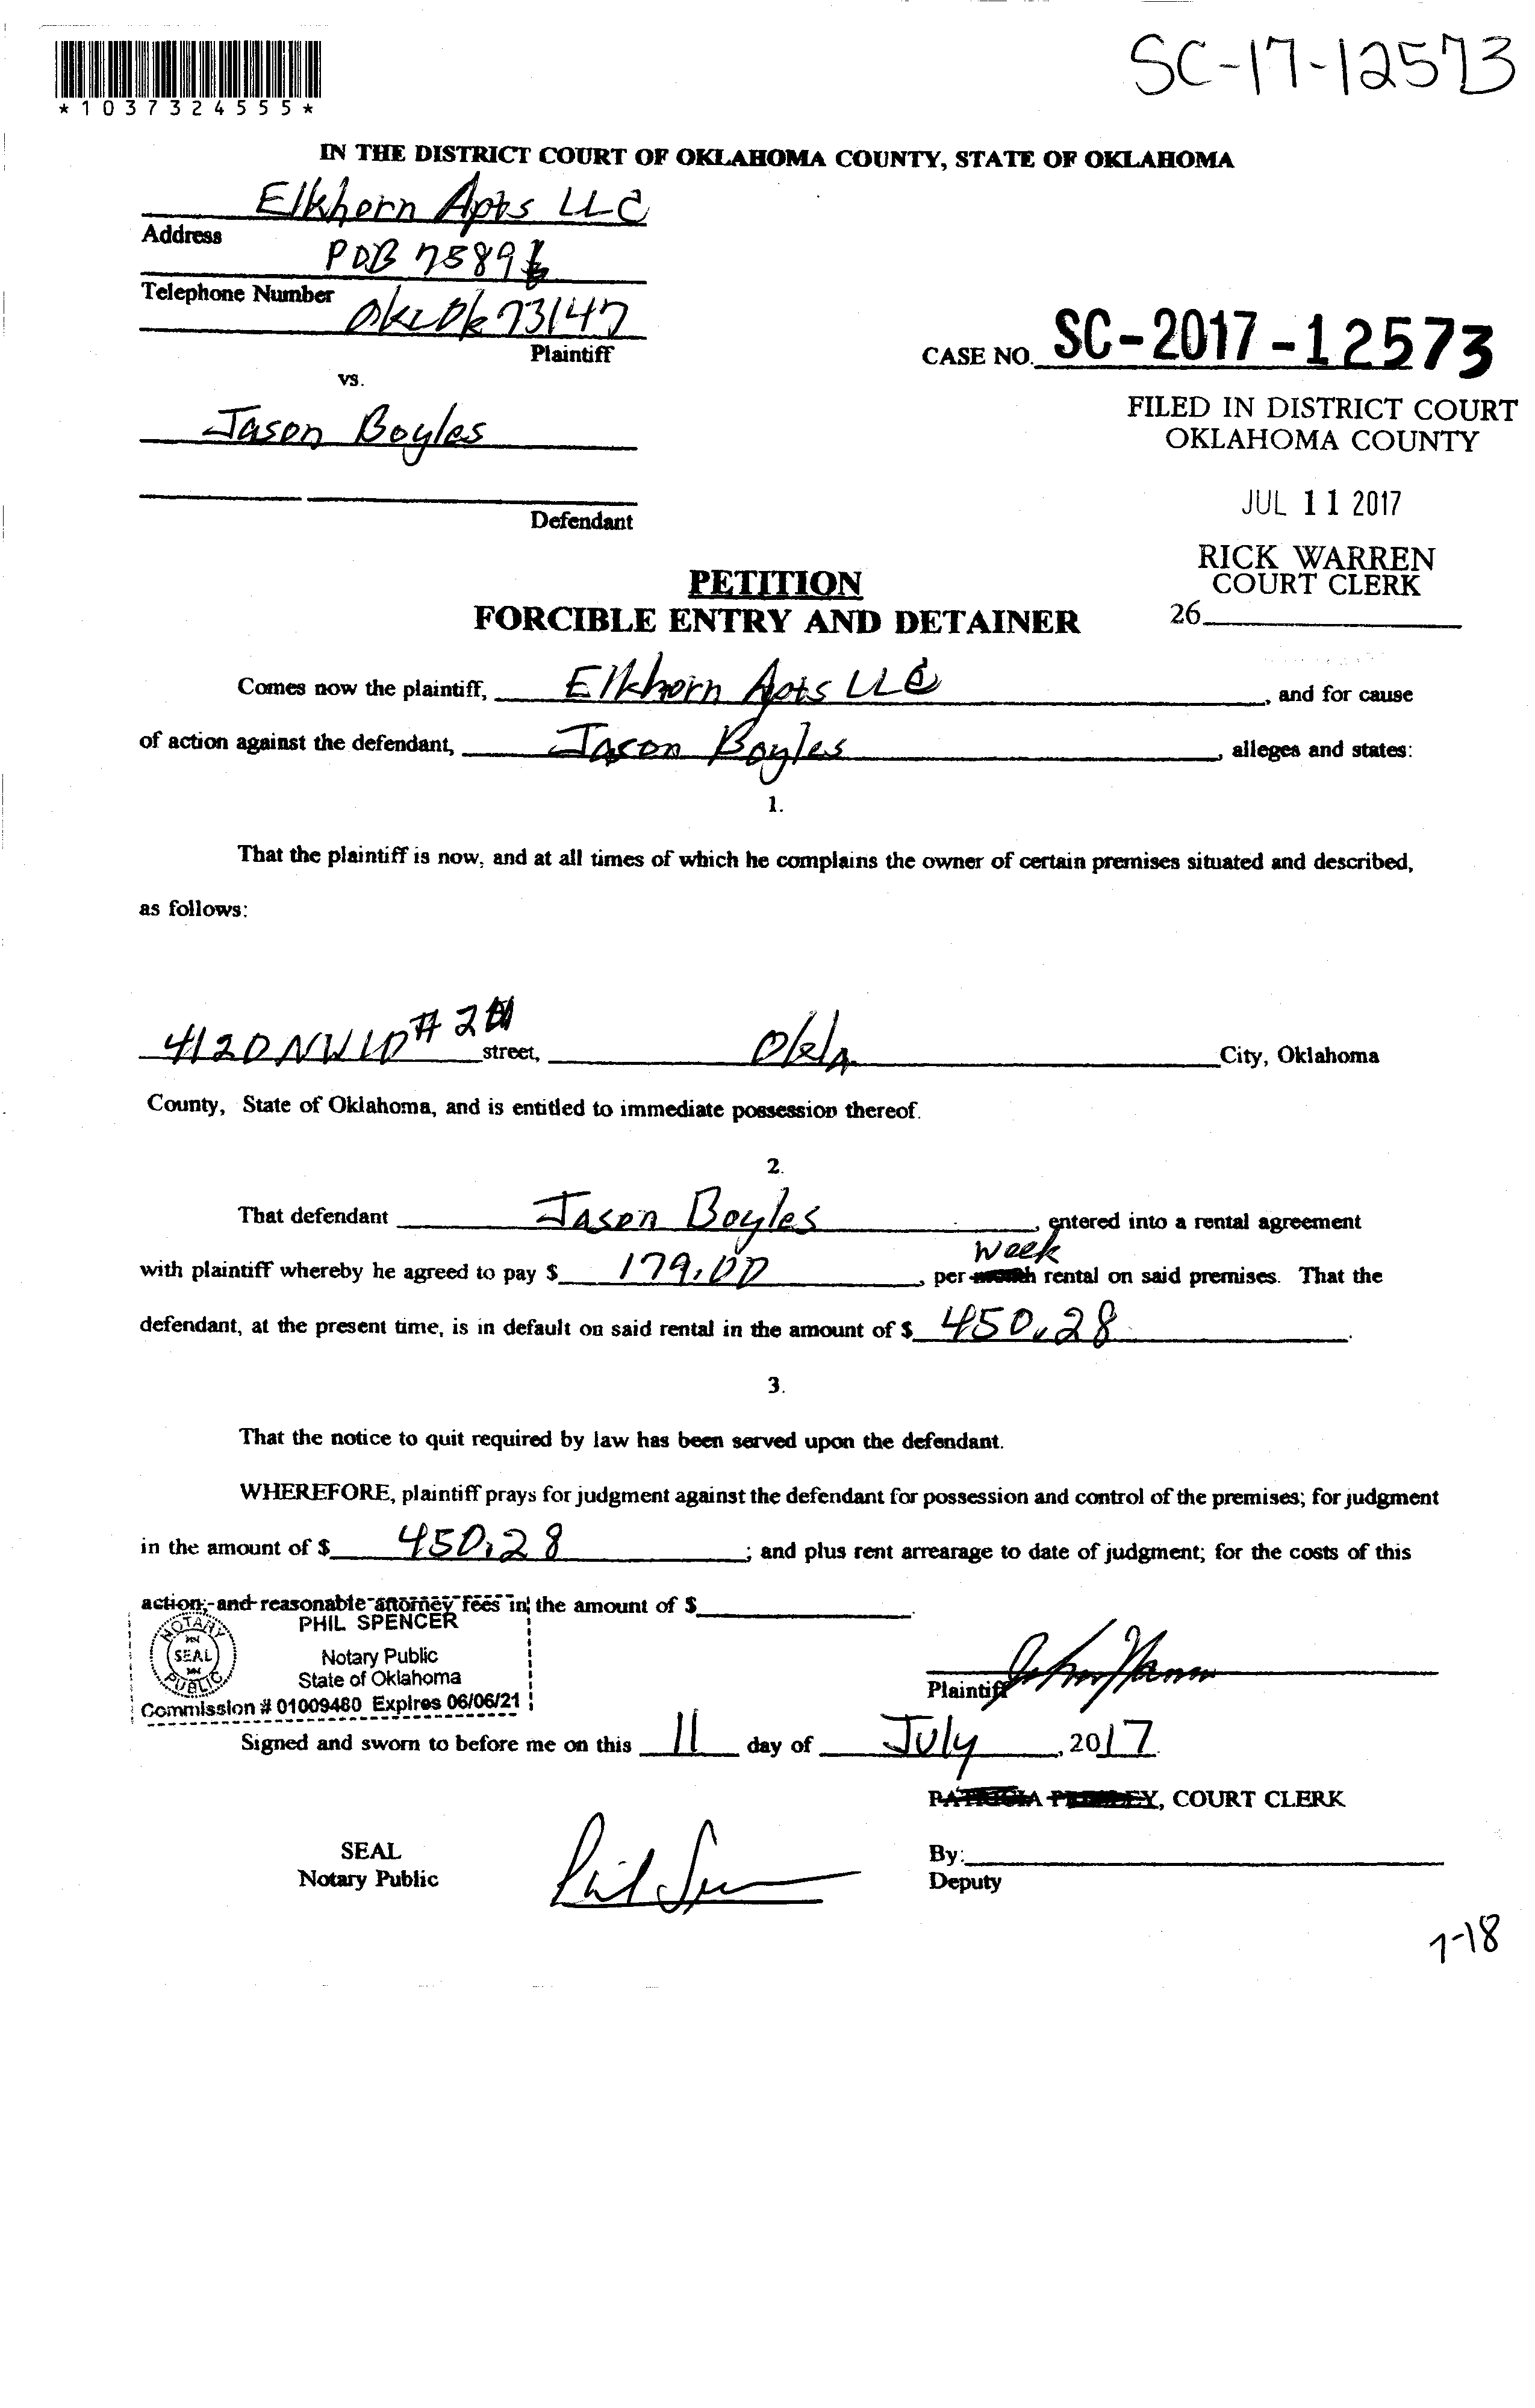 SC-17-12573
*1037324555*
IN THE DISTRICT COURT OF OKLAHOMA COUNTY, STATE OF OKLAHOMA
Elkhorn Apts LLC
Address
POB 7589
Telephone Number
OKC OK 73147
Plaintiff
CASE NO. SC-2017-12573
vs.
Jason Boyles
FILED IN DISTRICT COURT
OKLAHOMA COUNTY
JUL 11 2017
Defendant
RICK WARREN
COURT CLERK
26
PETITION
FORCIBLE ENTRY AND DETAINER
Comes now the plaintiff, Elkhorn Apts LLC, and for cause
of action against the defendant, Jason Boyles, alleges and states:
1.
That the plaintiff is now, and at all times of which he complains the owner of certain premises situated and described,
as follows:
4120 NW 10 # street, Okla City, Oklahoma
County, State of Oklahoma, and is entitled to immediate possession thereof.
2.
That defendant Jason Boyles, entered into a rental agreement
week
with plaintiff whereby he agreed to pay $ 179.00, per month rental on said premises. That the
defendant, at the present time, is in default on said rental in the amount of $ 450.28.
3.
That the notice to quit required by law has been served upon the defendant.
WHEREFORE, plaintiff prays for judgment against the defendant for possession and control of the premises; for judgment
in the amount of $ 450.28; and plus rent arrearage to date of judgment; for the costs of this
action; and reasonable attorney fees in the amount of $.
NOTARY PUBLIC SEAL
PHIL SPENCER
Notary Public
State of Oklahoma
Commission # 01009480 Expires 06/06/21
Plaintiff
Signed and sworn to before me on this 11 day of July, 2017.
, COURT CLERK
SEAL
Notary Public
By:
Deputy
7-18